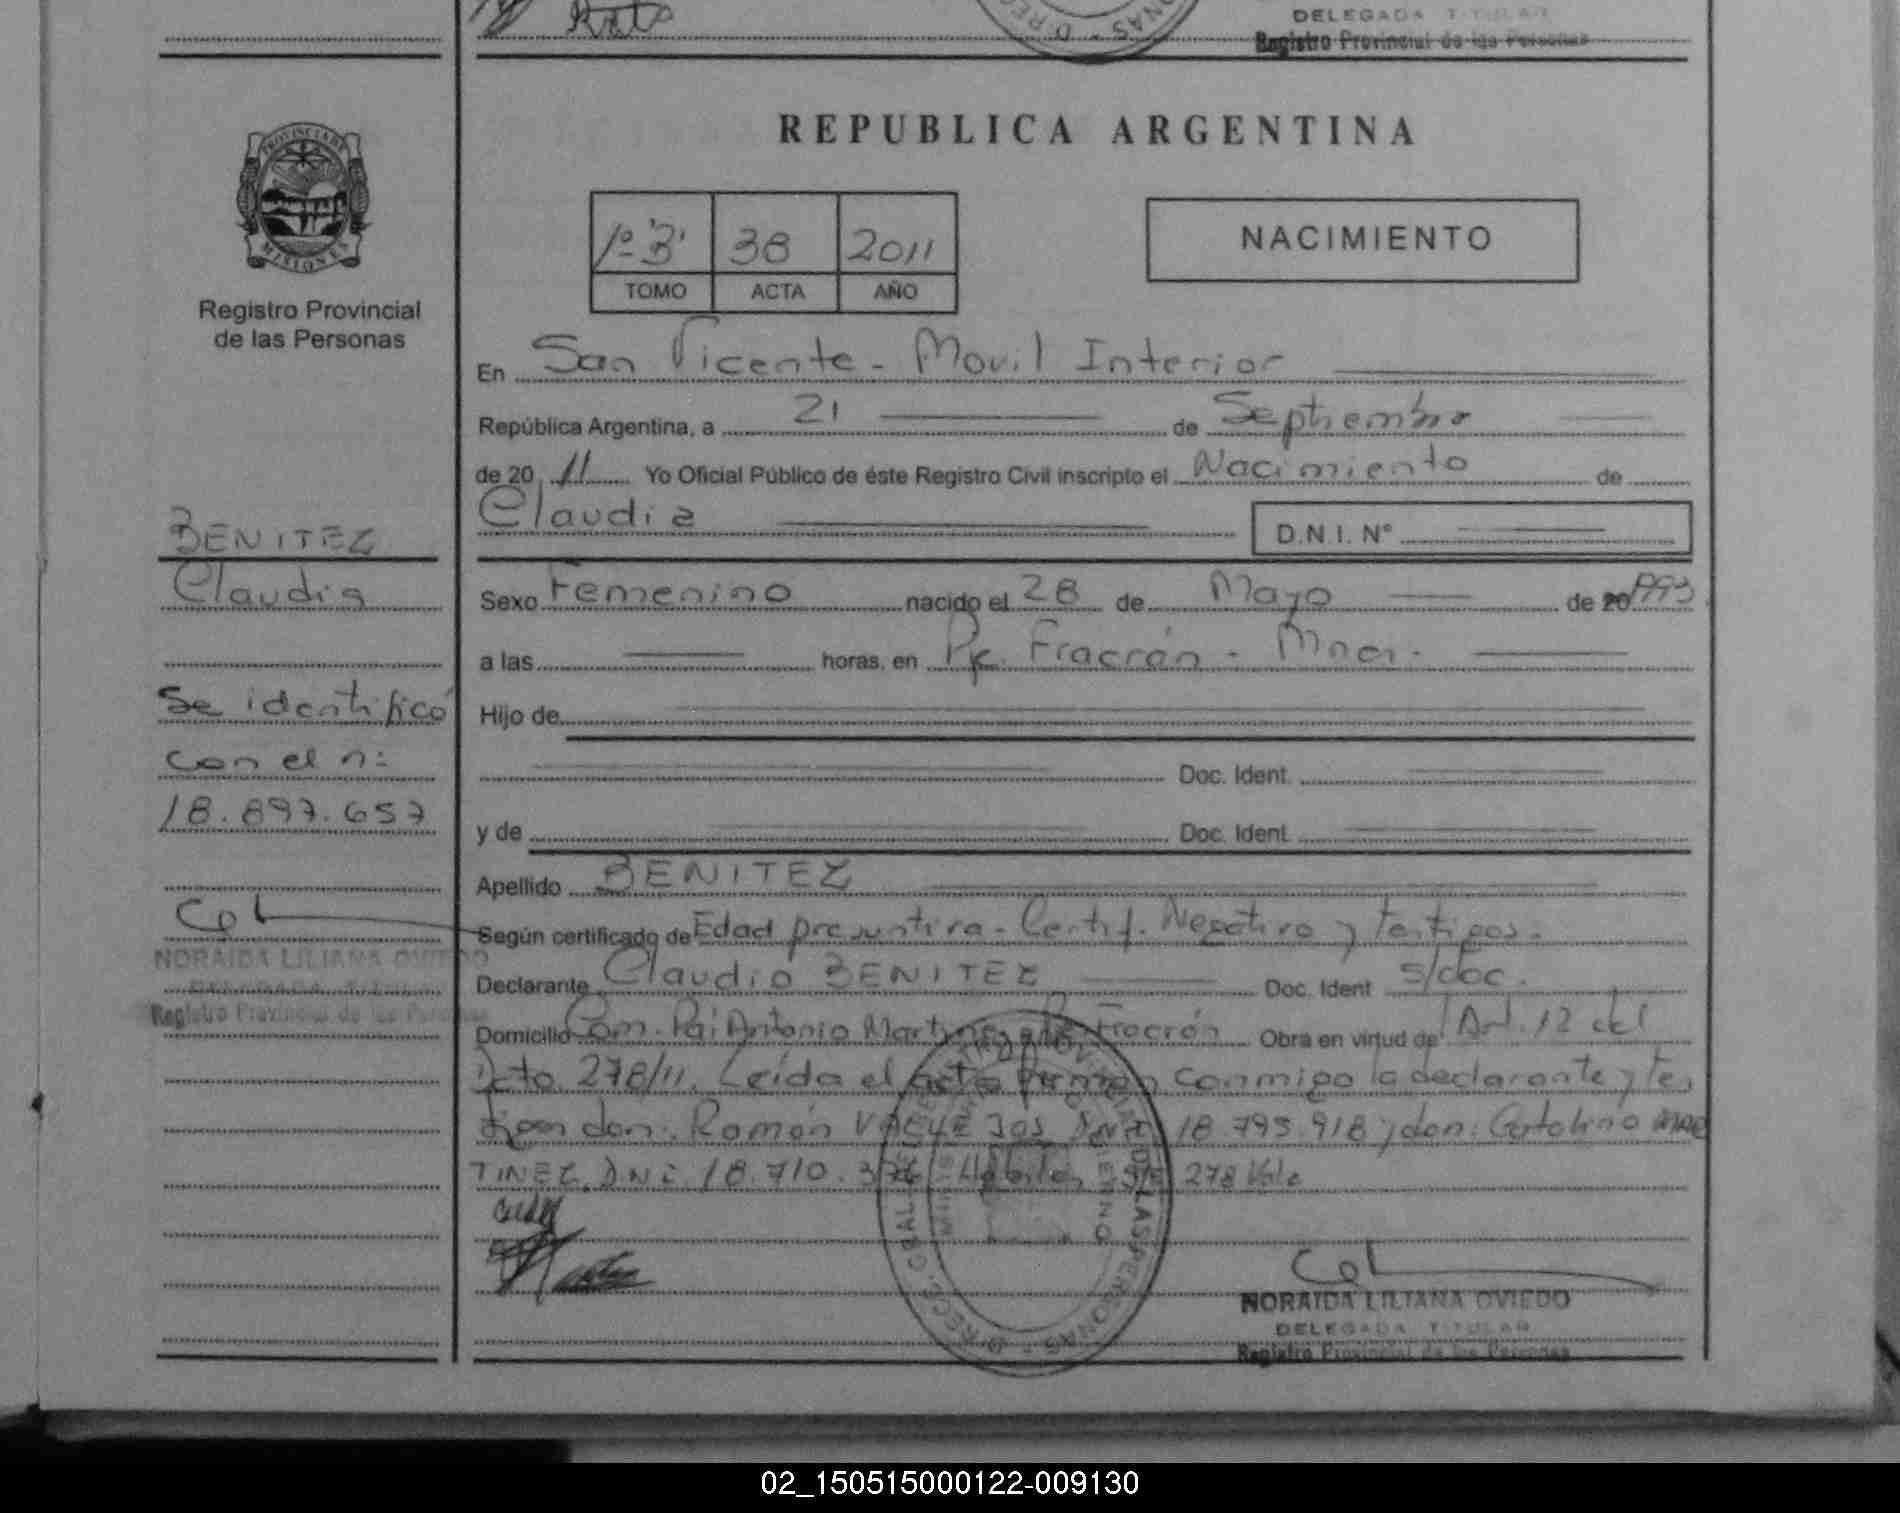 DELEGADA TITULAR
Registro Provincial de las Personas
PROVINCIA DE
MISIONES
Registro Provincial
de las Personas
BENITEZ
Claudia
Se identificó
con el n:
18.897.657
NORAIDA LILIANA OVIEDO
DELEGADA TITULAR
Registro Provincial de las Personas
REPUBLICA ARGENTINA
1º "B" 38 2011
TOMO ACTA AÑO
NACIMIENTO
En San Vicente - Movil Interior
República Argentina, a 21 de Septiembre
de 20 11 Yo Oficial Público de éste Registro Civil inscripto el Nacimiento de
Claudia D.N.I. Nº
Sexo Femenino nacido el 28 de Mayo de 20 1993
a las horas, en Pje. Fracrán - Mnes.
Hijo de
Doc. Ident.
y de Doc. Ident.
Apellido BENITEZ
Según certificado de Edad presuntiva - Certif. Negativo y testigos.
Declarante Claudio BENITEZ Doc. Ident s/doc.
Domicilio Com. Pai Antonio Martinez Fracrán Obra en virtud de Art. 12 del
Dcto. 278/11. Leída el acta firman conmigo la declarante y tes
tigos don: Ramón 18.795.918 y don: Catalino MAR
TINEZ D.N.I. 18.710. Hábiles 278 Vale
NORAIDA LILIANA OVIEDO
DELEGADA TITULAR
Registro Provincial de las Personas
02_150515000122-009130